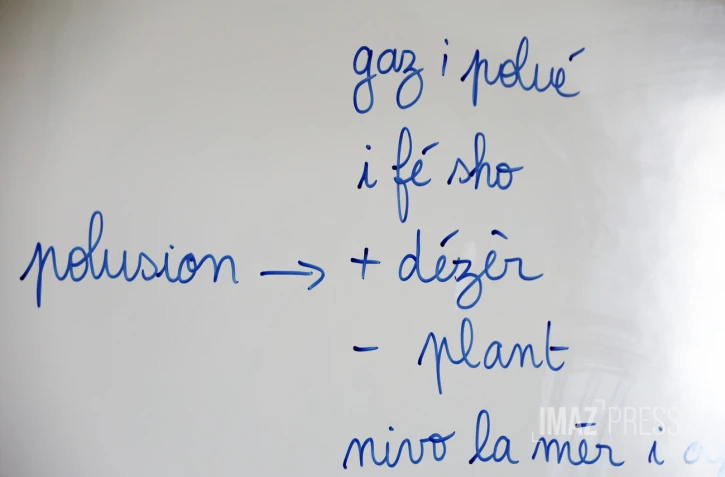 gaz i polué
i fé sho
polusion → + dézèr
- plant
IMAZ PRESS
nivo la mèr i